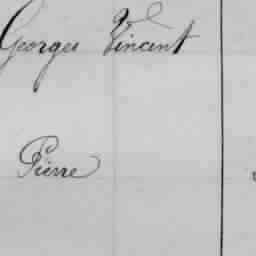 Georges Vincent
Pierre